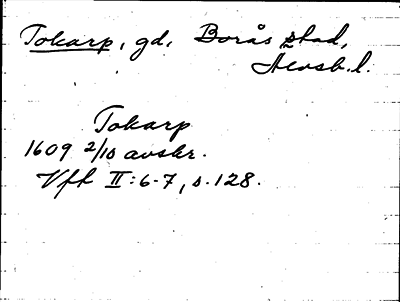 Tokarp, gd, Borås stad,
Älvsb. l.
Tokarp
1609 2/10 avskr.
Vfh II:6-7, s. 128.